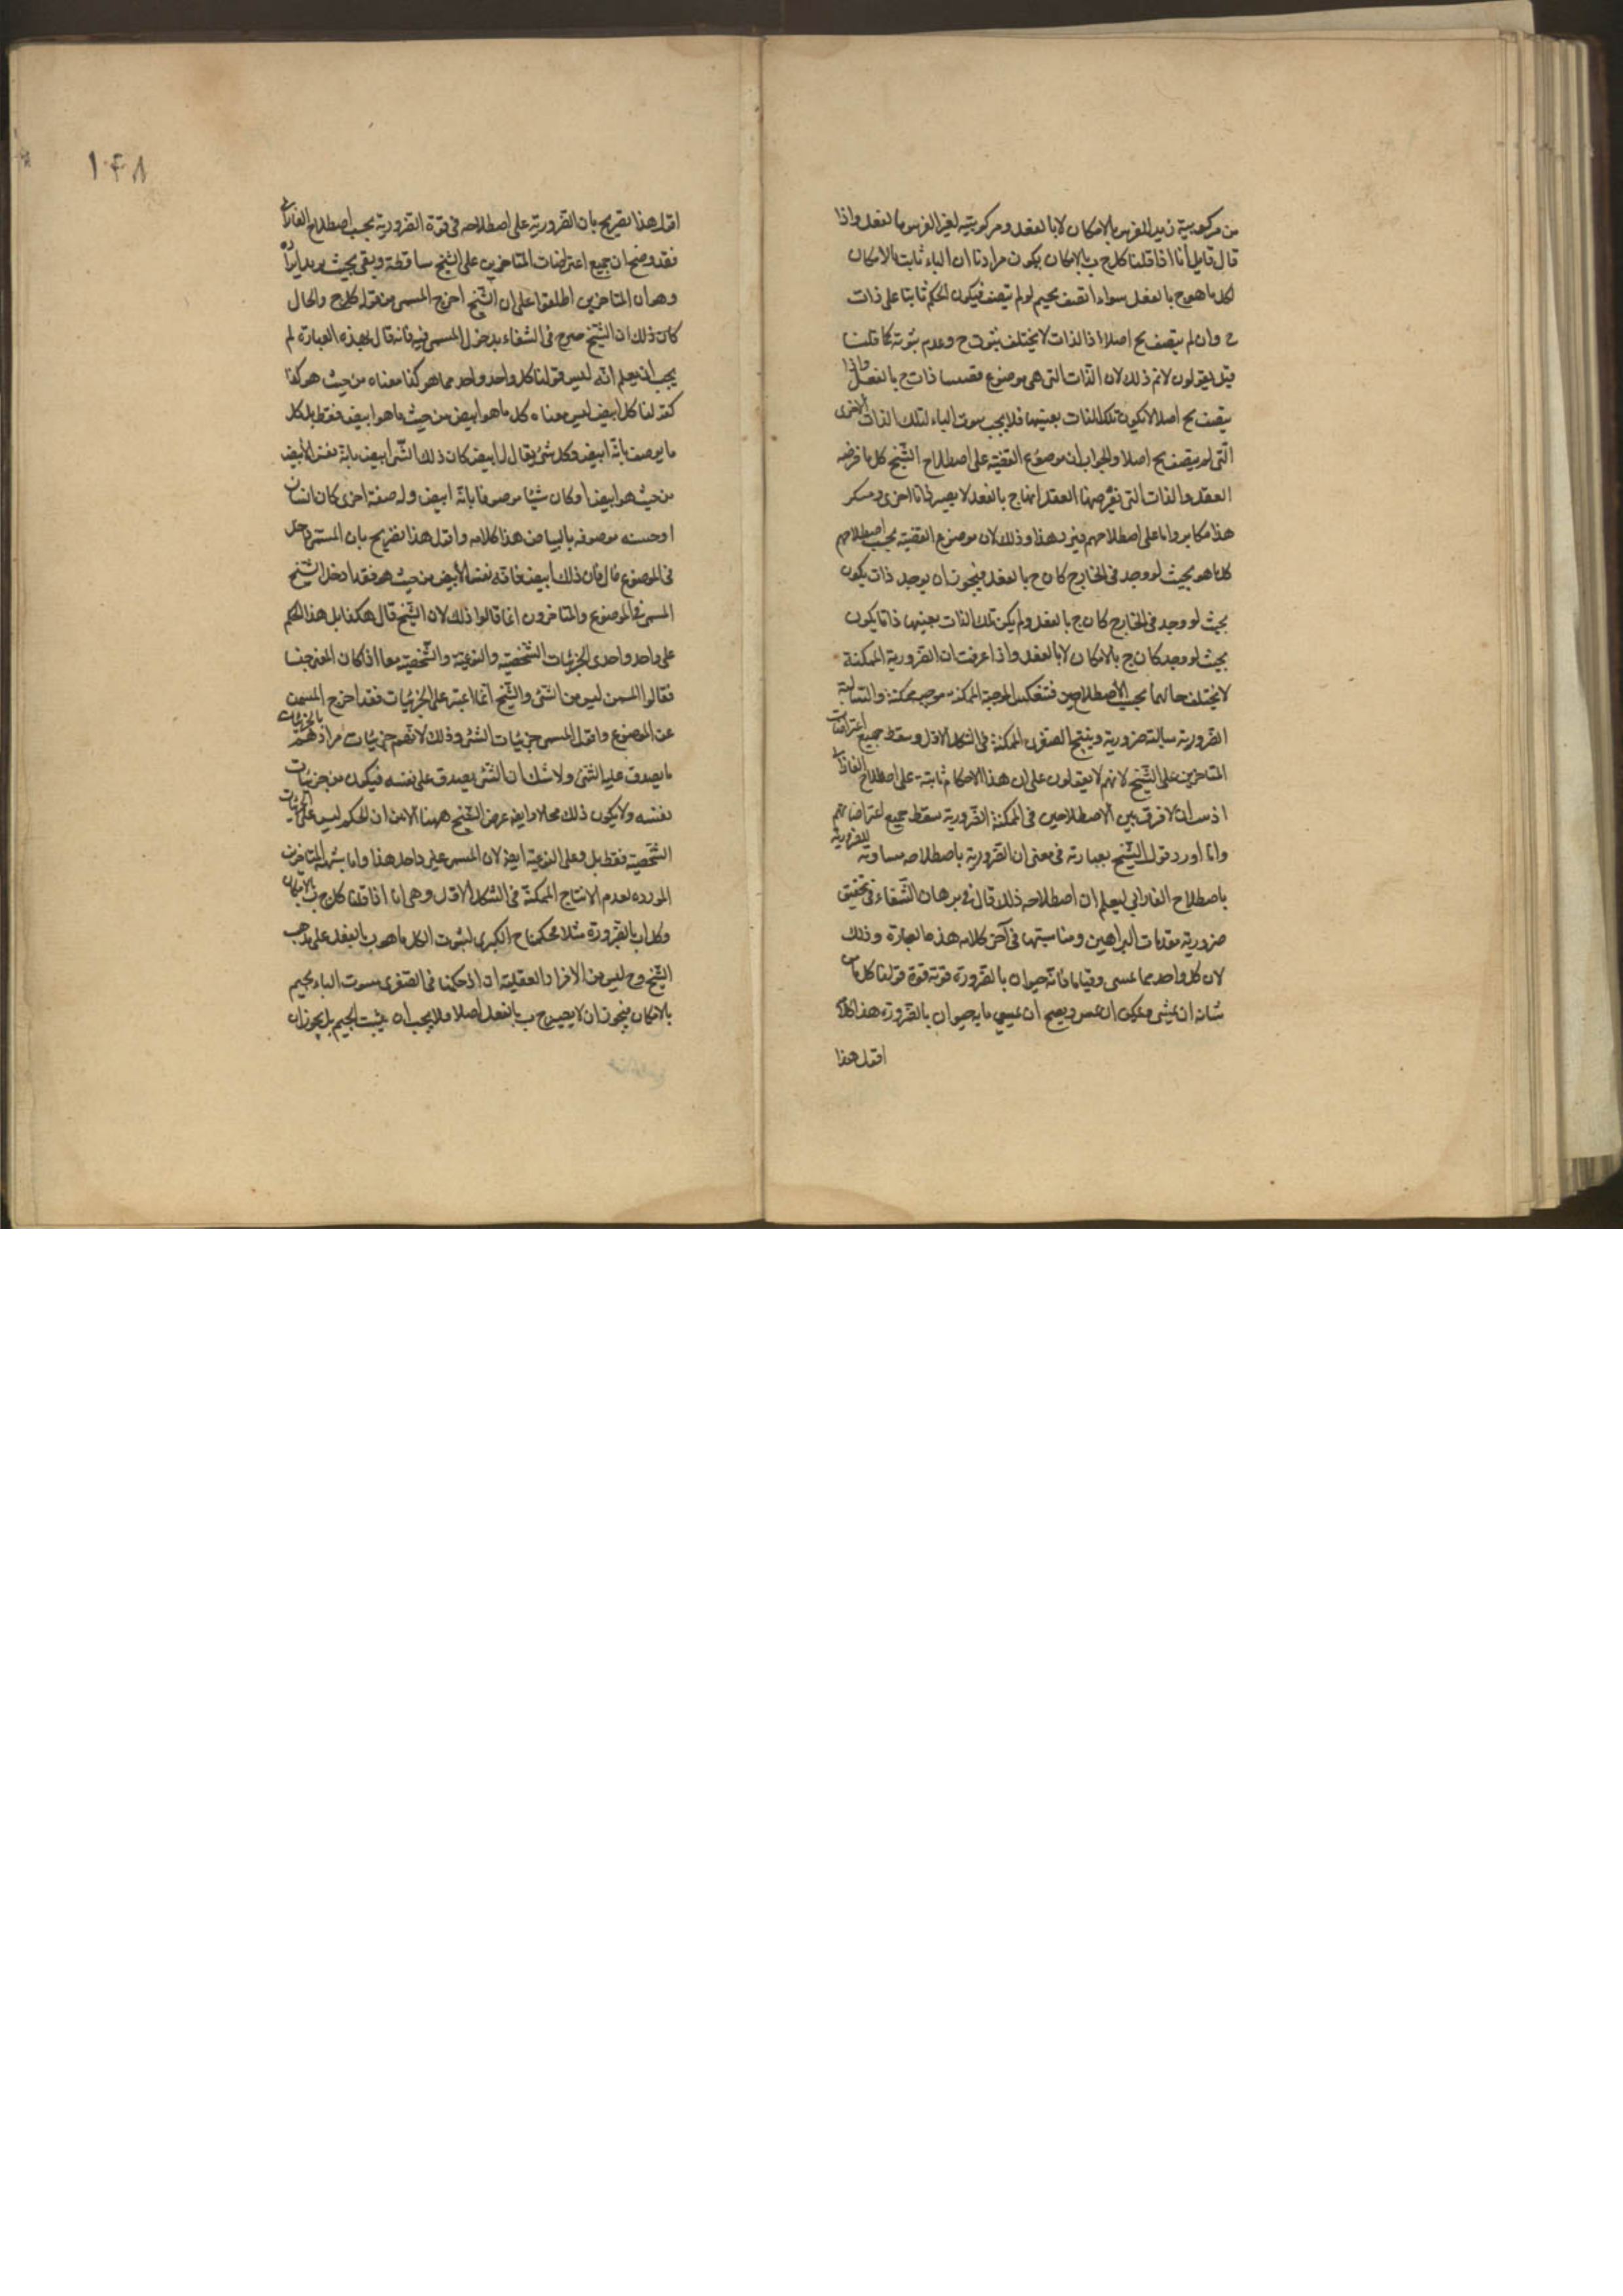 من مركوبية زيد للفرس بالامكان لا بالفعل ومركوبيته لغير الفرس بالفعل واذا
قال قايل انا اذا قلنا كل ج ب بالامكان يكون مرادنا ان الباء ثابت بالامكان
لكل ما هو ج بالفعل سواء اتصف بجيم او لم يتصف فيكون الحكم ثابتا على ذات
ج وان لم يتصف بج اصلا اذ الذات لا يختلف بثبوت ج وعدم ثبوته كما قلنا
قبل يقولون لا نم ذلك لان الذات التي هي موضوع ذات ج بالفعل واذا
يتصف بج اصلا لا يكون تلك الذات بعينها فلا يجب ثبوت الباء لتلك الذات الاخرى
التي لم يتصف بج اصلا والجواب ان موضوع القضية على اصطلاح الشيخ كل ما فرضه
العقل والذات التي يفرضها العقل انها ج بالفعل لا يصير ذاتا اخرى ومنكر
هذا مكابر واما على اصطلاحهم فيرد هذا وذلك لان موضوع القضية بحسب اصطلاحهم
كل ما هو بحيث لو وجد في الخارج كان ج بالفعل فيجوز ان يوجد ذات يكون
بحيث لو وجد في الخارج كان ج بالفعل ولم يكن تلك الذات بعينها ذاتا يكون
بحيث لو وجد كان ج بالامكان لا بالفعل واذا عرفت ان الضرورية الممكنة
لا يختلف حالهما بحسب الاصطلاحين فتنعكس الموجبة الممكنة موجبة ممكنة والسالبة
الضرورية سالبة ضرورية وينتج الصغرى الممكنة في الشكل الاول وسقط جميع اعتراضات
المتاخرين على الشيخ لانهم لا يقولون على ان هذا الاحكام ثابتة على اصطلاح الفارابي
اذ ان لا فرق بين الاصطلاحين في الممكنة الضرورية سقط جميع اعتراضاتهم
وانا اورد قول الشيخ بعبارته في معنى ان الضرورية باصطلاحه مساوية للضرورية
باصطلاح الفارابي ليعلم ان اصطلاحه ذلك قال في برهان الشفاء في تحقيق
ضرورية مقدمات البراهين ومناسبتها في آخر كلامه هذه العبارة وذلك
لان كل واحد مما يمشي وقتا ما فانه حيوان بالضرورة قوته قوة قولنا كل ما من
شانه ان يمشي ويمكن ان يمشي ويصح ان يمشي حيوان بالضرورة هذا كلامه
اقول هذا
١٤٨
اقول هذا تصريح بان الضرورية على اصطلاحه في قوة الضرورية بحسب اصطلاح الفارابي
فقد وضح ان جميع اعتراضات المتاخرين على الشيخ ساقطة وبقي بحيث
وهو ان المتاخرين اطلقوا على ان الشيخ اخرج المسمى من قوله كل ج والحال
كان ذلك ان الشيخ صرح في الشفاء بدخول المسمى فيه فانه قال بهذه العبارة ثم
يجب ان يعلم انه ليس قولنا كل واحد واحد مما هو كذا معناه من حيث هو كذا
كقولنا كل ابيض ليس معناه كل ما هو ابيض من حيث ما هو ابيض فقط بل كل
ما يوصف بانه ابيض وكل شئ يقال له ابيض كان ذلك الشئ ابيض بانه نفس الابيض
من حيث هو ابيض او كان شيئا موصوفا بانه ابيض وله صفة اخرى كان انسان
او موصوفة بالبياض هذا كلامه واقول هذا تصريح بان المسمى داخل
في الموضوع قال فان ذلك ابيض فانه نفس الابيض من حيث هو فقد ادخل الشيخ
المسمى في الموضوع والمتاخرون انما قالوا ذلك لان الشيخ قال هكذا بل هذا الحكم
على واحد واحد من الجزئيات الشخصية والنوعية والشخصية معا اذا كان المعنى جنسا
فقالوا المسمى ليس من الشئ والشيخ انما اعتبر على الجزئيات فقد اخرج المسمى
عن الموضوع واقول المسمى جزئيات الشئ وذلك لانهم مرادهم بالجزئيات
ما يصدق عليه الشئ ولا شك ان الشئ يصدق على نفسه فيكون من جزئيات
نفسه ولا يكون ذلك محالا وايضا غرض الشيخ ههنا ان الحكم ليس على الجزئيات
الشخصية فقط بل وعلى النوعية ايضا لان المسمى على واحد هذا واما شبهة المتاخرين
الموردة لعدم الانتاج الممكنة في الشكل الاول وهي انا اذا قلنا كل ج ب بالامكان
وكل ب ا بالضرورة مثلا فحكمنا ح الكبرى بثبوت ا لكل ما هو ب بالفعل على مذهب
الشيخ وج ليس من الافراد العقلية ان اذ حكمنا في الصغرى بثبوت الباء لجيم
بالامكان فيجوز ان لا يصير ج ب بالفعل اصلا فلا يجب ان يثبت لجيم بل يجوز ان